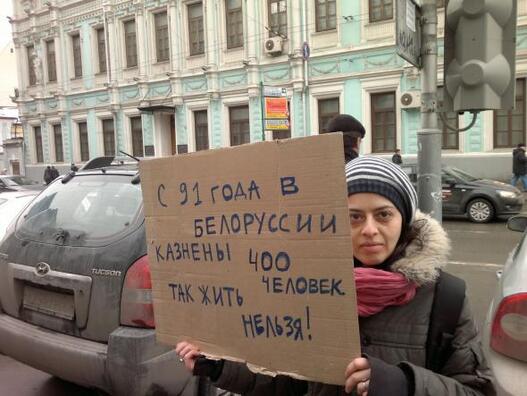 С 91 ГОДА В
БЕЛОРУССИИ
КАЗНЕНЫ 400
ЧЕЛОВЕК
ТАК ЖИТЬ
НЕЛЬЗЯ!
TUCSON